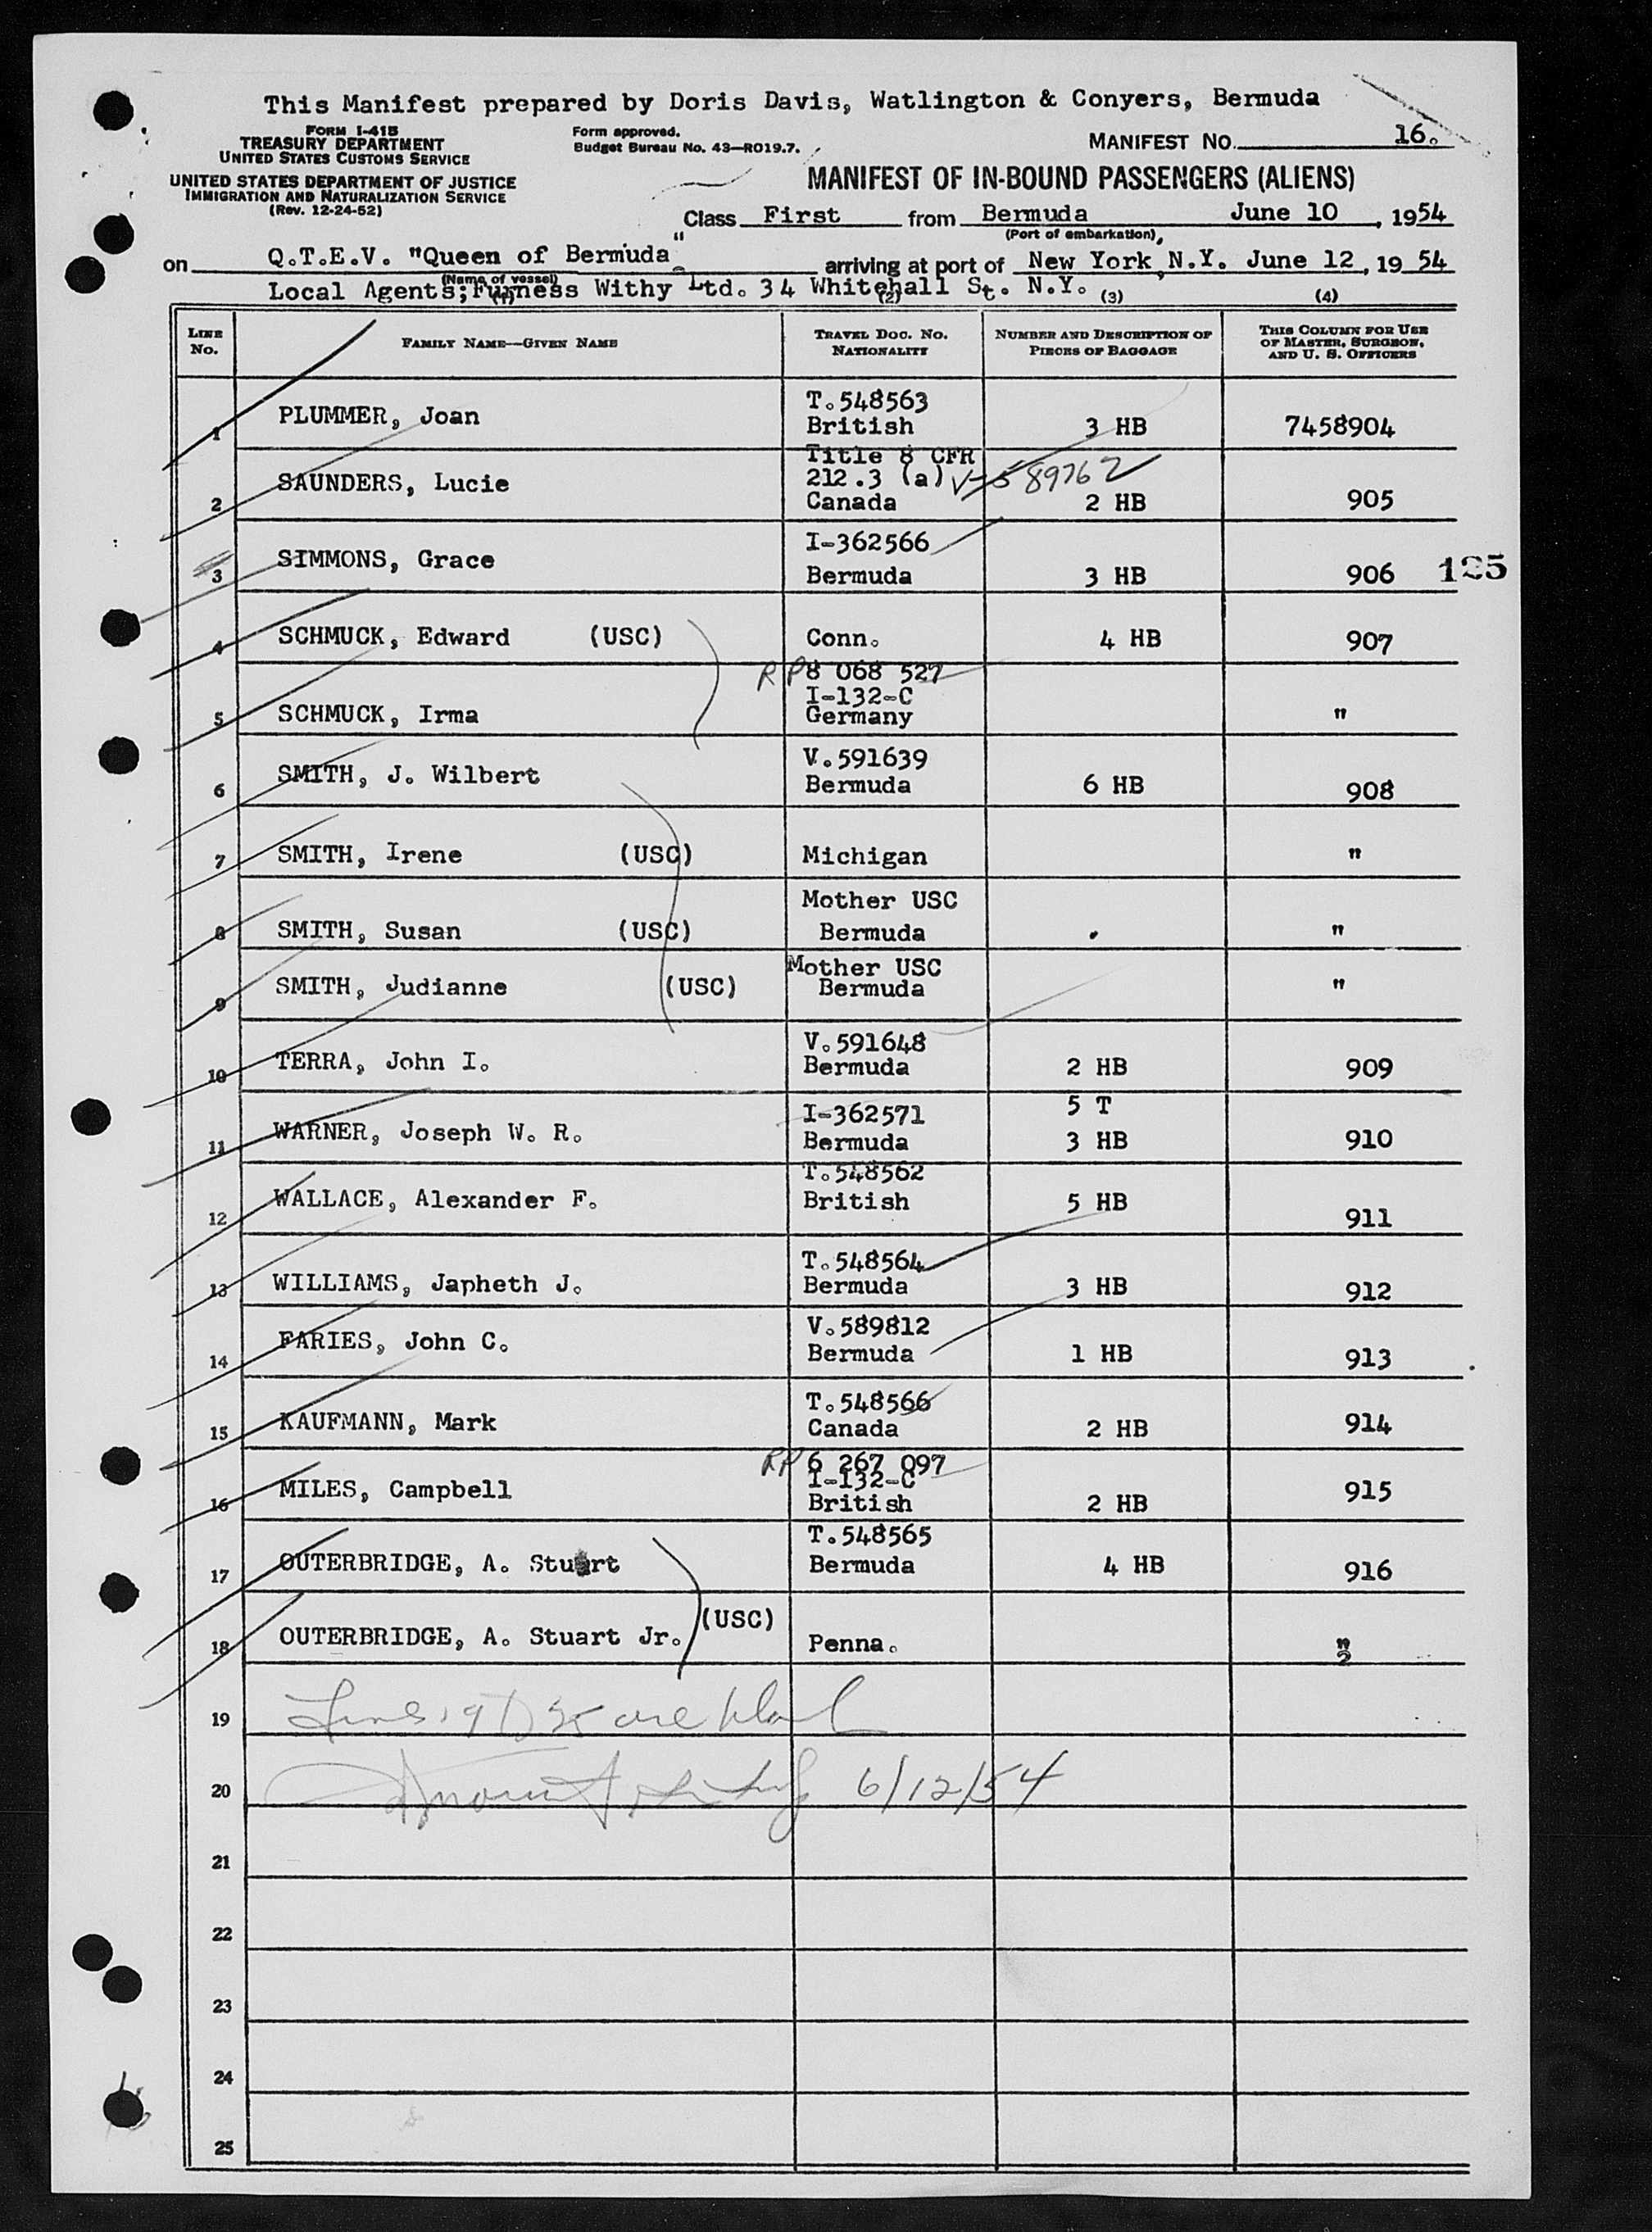 This Manifest prepared by Doris Davis, Watlington & Conyers, Bermuda
FORM I-415
TREASURY DEPARTMENT
UNITED STATES CUSTOMS SERVICE
UNITED STATES DEPARTMENT OF JUSTICE
IMMIGRATION AND NATURALIZATION SERVICE
(Rev. 12-24-52)
Form approved.
Budget Bureau No. 43—RO19.7.
MANIFEST NO. 16.
MANIFEST OF IN-BOUND PASSENGERS (ALIENS)
Class First from Bermuda June 10, 1954
(Port of embarkation)
on Q.T.E.V. "Queen of Bermuda" arriving at port of New York, N.Y. June 12, 1954
(Name of vessel)
Local Agents; Furness Withy Ltd. 34 Whitehall St. N.Y.
(1) (2) (3) (4)
LINE No. FAMILY NAME—GIVEN NAME TRAVEL DOC. NO. NATIONALITY NUMBER AND DESCRIPTION OF PIECES OF BAGGAGE THIS COLUMN FOR USE OF MASTER, SURGEON, AND U. S. OFFICERS
1 PLUMMER, Joan T.548563 British 3 HB 7458904
2 SAUNDERS, Lucie Title 8 CFR 212.3 (a) V-589762 Canada 2 HB 905
3 SIMMONS, Grace I-362566 Bermuda 3 HB 906 125
4 SCHMUCK, Edward (USC) Conn. 4 HB 907
5 SCHMUCK, Irma RP 8 068 527 I-132-C Germany "
6 SMITH, J. Wilbert V.591639 Bermuda 6 HB 908
7 SMITH, Irene (USC) Michigan "
8 SMITH, Susan (USC) Mother USC Bermuda "
9 SMITH, Judianne (USC) Mother USC Bermuda "
10 TERRA, John I. V.591648 Bermuda 2 HB 909
11 WARNER, Joseph W. R. I-362571 Bermuda 5 T 3 HB 910
12 WALLACE, Alexander F. T.548562 British 5 HB 911
13 WILLIAMS, Japheth J. T.548564 Bermuda 3 HB 912
14 FARIES, John C. V.589812 Bermuda 1 HB 913
15 KAUFMANN, Mark T.548566 Canada 2 HB 914
16 MILES, Campbell RP 6 267 097 I-132-C British 2 HB 915
17 OUTERBRIDGE, A. Stuart T.548565 Bermuda 4 HB 916
18 OUTERBRIDGE, A. Stuart Jr. (USC) Penna. "
19 Lines 19 are
20 6/12/54
21
22
23
24
25